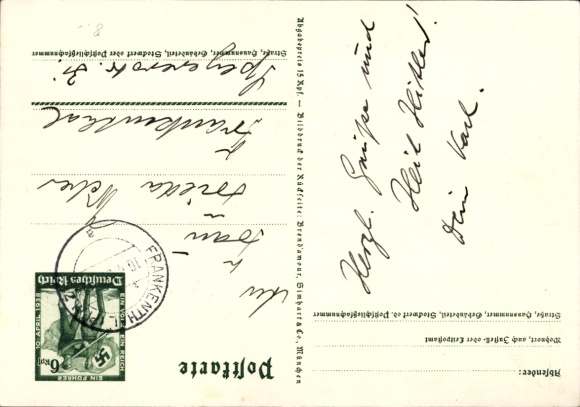 Postkarte
Deutsches Reich
10. APRIL 1938
EIN VOLK EIN REICH
EIN FÜHRER
6 Rpf
FRANKENTHAL
An
Frau
Frankenthal
Straße, Hausnummer, Gebäudeteil, Stockwerk oder Postschließfachnummer
Abgabepreis 15 Rpf. — Bildvorwurf der Rückseite: Brendamour, Simhart & Co., München
Absender:
Wohnort, auch Zustell- oder Leitpostamt
Straße, Hausnummer, Gebäudeteil, Stockwerk od. Postschließfachnummer
Herzl. Grüße und
Heil Hitler!
Dein Karl.